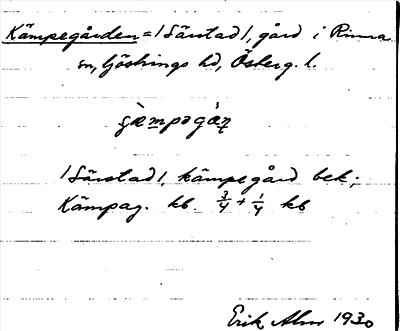 Kämpegården = /Särstad/, gård i Rinna
sn, Göstrings hd, Österg. l.
/Särstad/, kämpegård bek;
Kämpag. kb. 3/4 + 1/4 kb
Erik Alm 1930